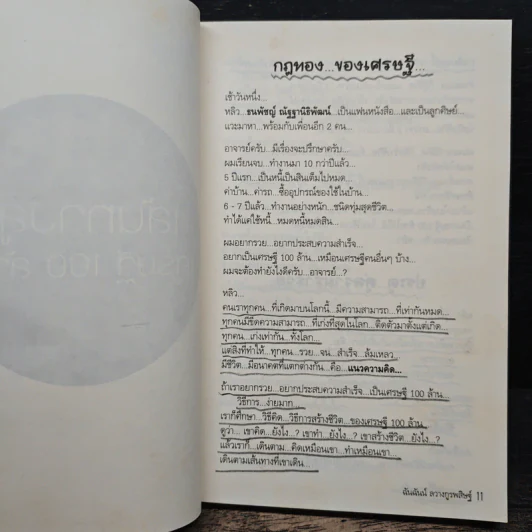 กฎทอง...ของเศรษฐี...
เช้าวันหนึ่ง...
หลิว...ธนพัชญ์ ณัฐฐานิธิพัฒน์...เป็นแฟนหนังสือ...และเป็นลูกศิษย์...
แวะมาหา...พร้อมกับเพื่อนอีก 2 คน...
อาจารย์ครับ...มีเรื่องจะปรึกษาครับ...
ผมเรียนจบ...ทำงานมา 10 กว่าปีแล้ว...
5 ปีแรก...เป็นหนี้เป็นสินเต็มไปหมด...
ค่าบ้าน...ค่ารถ...ซื้ออุปกรณ์ของใช้ในบ้าน...
6 - 7 ปีแล้ว...ทำงานอย่างหนัก...ชนิดทุ่มสุดชีวิต...
ทำได้แค่ใช้หนี้...หมดหนี้หมดสิน...
ผมอยากรวย...อยากประสบความสำเร็จ...
อยากเป็นเศรษฐี 100 ล้าน...เหมือนเศรษฐีคนอื่นๆ บ้าง...
ผมจะต้องทำยังไงดีครับ...อาจารย์...?
หลิว...
คนเราทุกคน...ที่เกิดมาบนโลกนี้...มีความสามารถ...ที่เท่ากันหมด...
ทุกคนมีขีดความสามารถ...ที่เก่งที่สุดในโลก...ติดตัวมาตั้งแต่เกิด...
ทุกคน...เก่งเท่ากัน...ทั้งโลก...
แต่สิ่งที่ทำให้...ทุกคน...รวย...จน...สำเร็จ...ล้มเหลว...
มีชีวิต...มีอนาคตที่แตกต่างกัน...คือ...แนวความคิด...
ถ้าเราอยากรวย...อยากประสบความสำเร็จ...เป็นเศรษฐี 100 ล้าน...
วิธีการ...ง่ายมาก...
เราก็ศึกษา...วิธีคิด...วิธีการสร้างชีวิต...ของเศรษฐี 100 ล้าน...
ดูว่า...เขาคิด...ยังไง...? เขาทำ...ยังไง...? เขาสร้างชีวิต...ยังไง...?
แล้วเราก็...เดินตาม...คิดเหมือนเขา...ทำเหมือนเขา...
เดินตามเส้นทางที่เขาเดิน...
ฉันฉันน์ ลวางกูรพสิษฐ์ 11